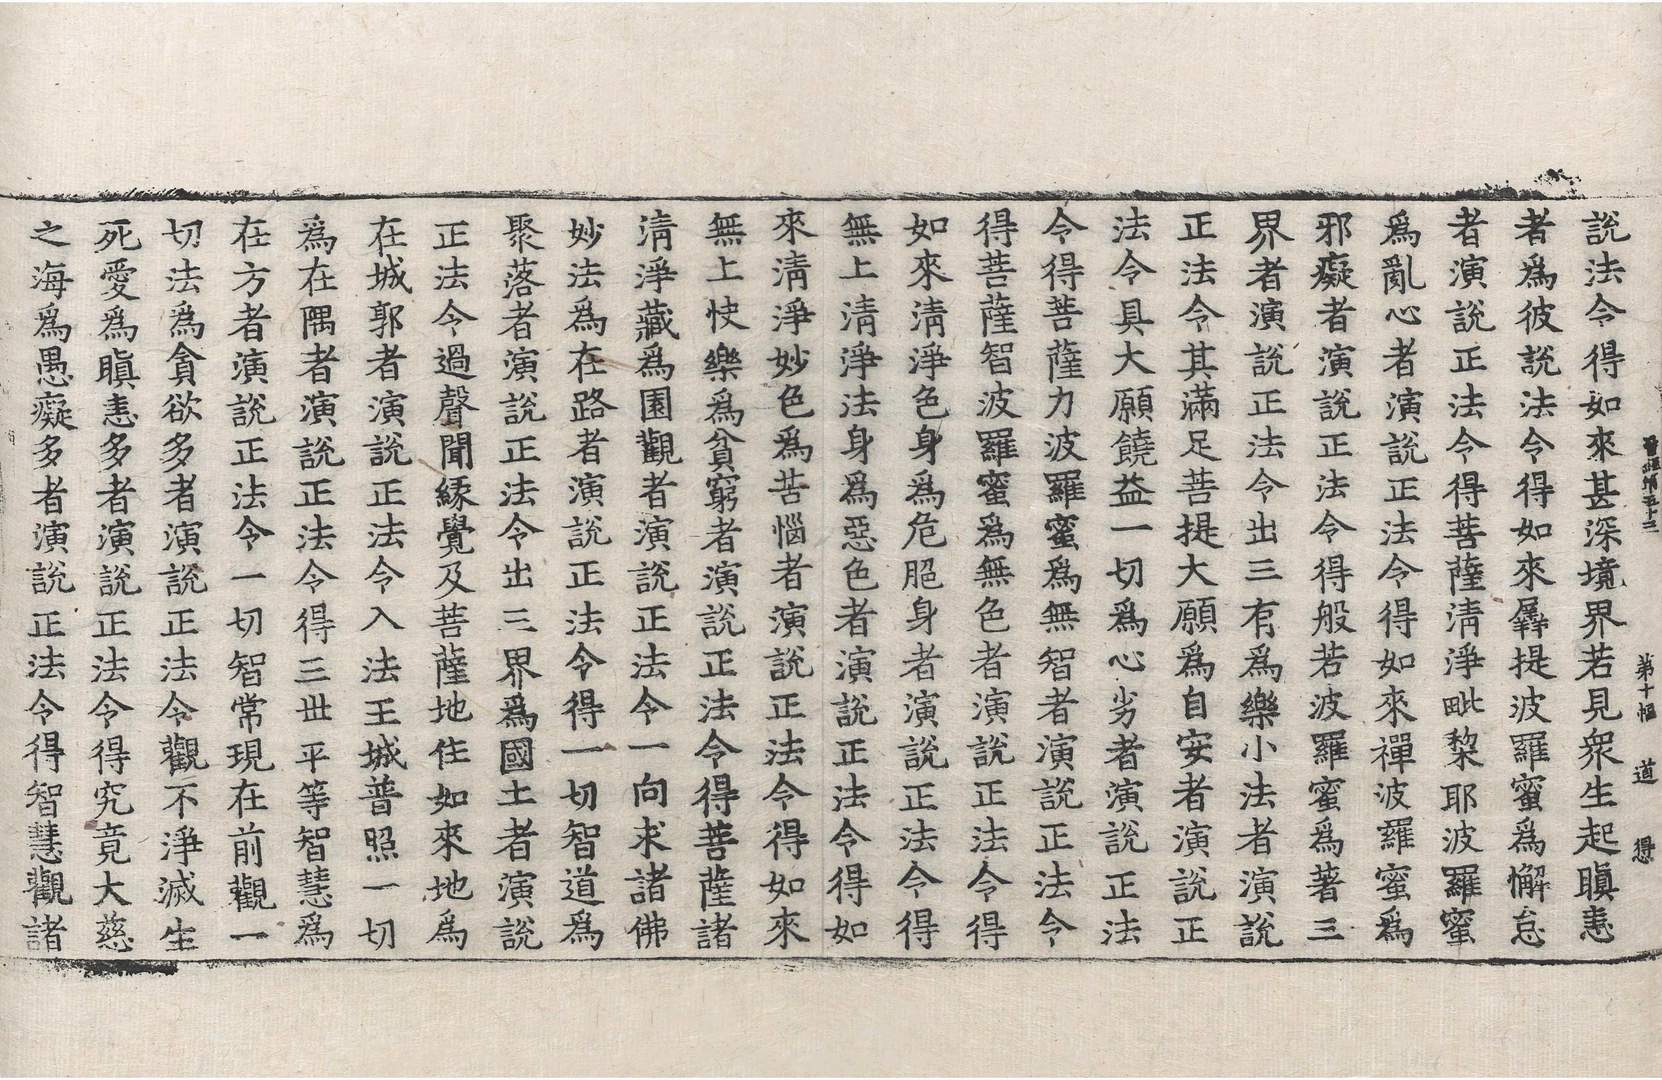 第十幅 道
說法令得如來甚深境界若見衆生起瞋恚
者爲彼說法令得如來羼提波羅蜜爲懈怠
者演說正法令得菩薩清淨毗棃耶波羅蜜
爲亂心者演說正法令得如來禪波羅蜜爲
邪癡者演說正法令得般若波羅蜜爲著三
界者演說正法令出三有爲樂小法者演說
正法令其滿足菩提大願爲自安者演說正
法令具大願饒益一切爲心劣者演說正法
令得菩薩力波羅蜜爲無智者演說正法令
得菩薩智波羅蜜爲無色者演說正法令得
如來清淨色身爲危脃身者演說正法令得
無上清淨法身爲惡色者演說正法令得如
來清淨妙色爲苦惱者演說正法令得如來
無上快樂爲貧窮者演說正法令得菩薩諸
清淨藏爲園觀者演說正法令一向求諸佛
妙法爲在路者演說正法令得一切智道爲
聚落者演說正法令出三界爲國土者演說
正法令過聲聞緣覺及菩薩地住如來地爲
在城郭者演說正法令入法王城普照一切
爲在隅者演說正法令得三世平等智慧爲
在方者演說正法令一切智常現在前觀一
切法爲貪欲多者演說正法令觀不淨滅生
死愛爲瞋恚多者演說正法令得究竟大慈
之海爲愚癡多者演說正法令得智慧觀諸